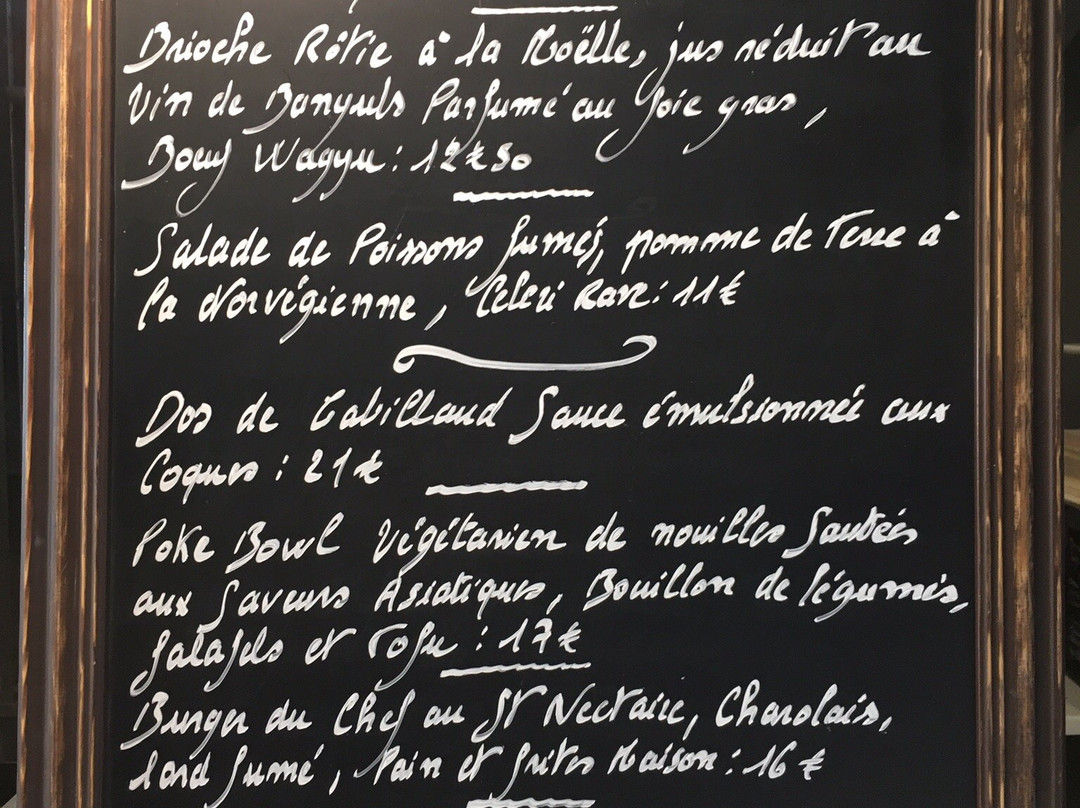 Brioche Rôtie à la Moëlle, jus réduit au
Vin de Banyuls Parfumé au foie gras,
Boeuf Wagyu : 12€50
Salade de Poissons fumés, pomme de Terre à
la Norvégienne, Céleri Rave : 11€
Dos de Cabillaud Sauce émulsionnée aux
Coques : 21€
Poke Bowl Végétarien de nouilles Sautées
aux Saveurs Asiatiques, Bouillon de légumes,
falafels et Tofu : 17€
Burger du Chef au St Nectaire, Charolais,
lard fumé, Pain et frites Maison : 16€